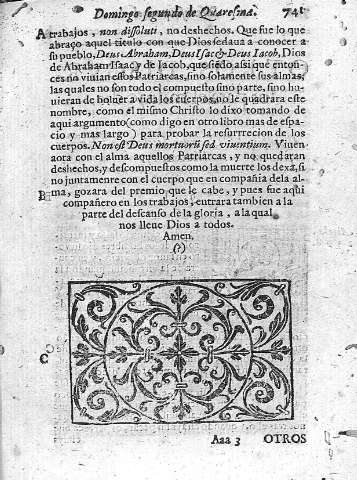 Domingo segundo de Quaresma. 741
A trabajos, non dissoluti, no deshechos. Que fue lo que
abraço aquel titulo con que Dios sedaua a conocer a
su pueblo, Deus Abraham, Deus Isac, & Deus Iacob, Dios
de Abraham Isaac y de Iacob, que siẽdo assi que enton-
ces no viuian estos Patriarcas, sino solamente sus almas,
las quales no son todo el compuesto sino parte, sino hu-
uieran de boluer a vida los cuerpos, no le quadrara este
nombre, como el mismo Christo lo dixo tomando de
aqui argumento (como digo en otro libro mas de espa-
cio y mas largo) para probar la resurreccion de los
cuerpos. Non est Deus mortuorũ sed viuentium. Viuen
aora con el alma aquellos Patriarcas, y no quedaran
deshechos, y descompuestos como la muerte los dexa, si
no juntamente con el cuerpo que en compañia dela al-
B ma, gozara del premio que le cabe, y pues fue aqui
compañero en los trabajos, entrara tambien a la
parte del descanso de la gloria, a la qual
nos lleue Dios a todos.
Amen.
(?)
C
Aaa 3 OTROS